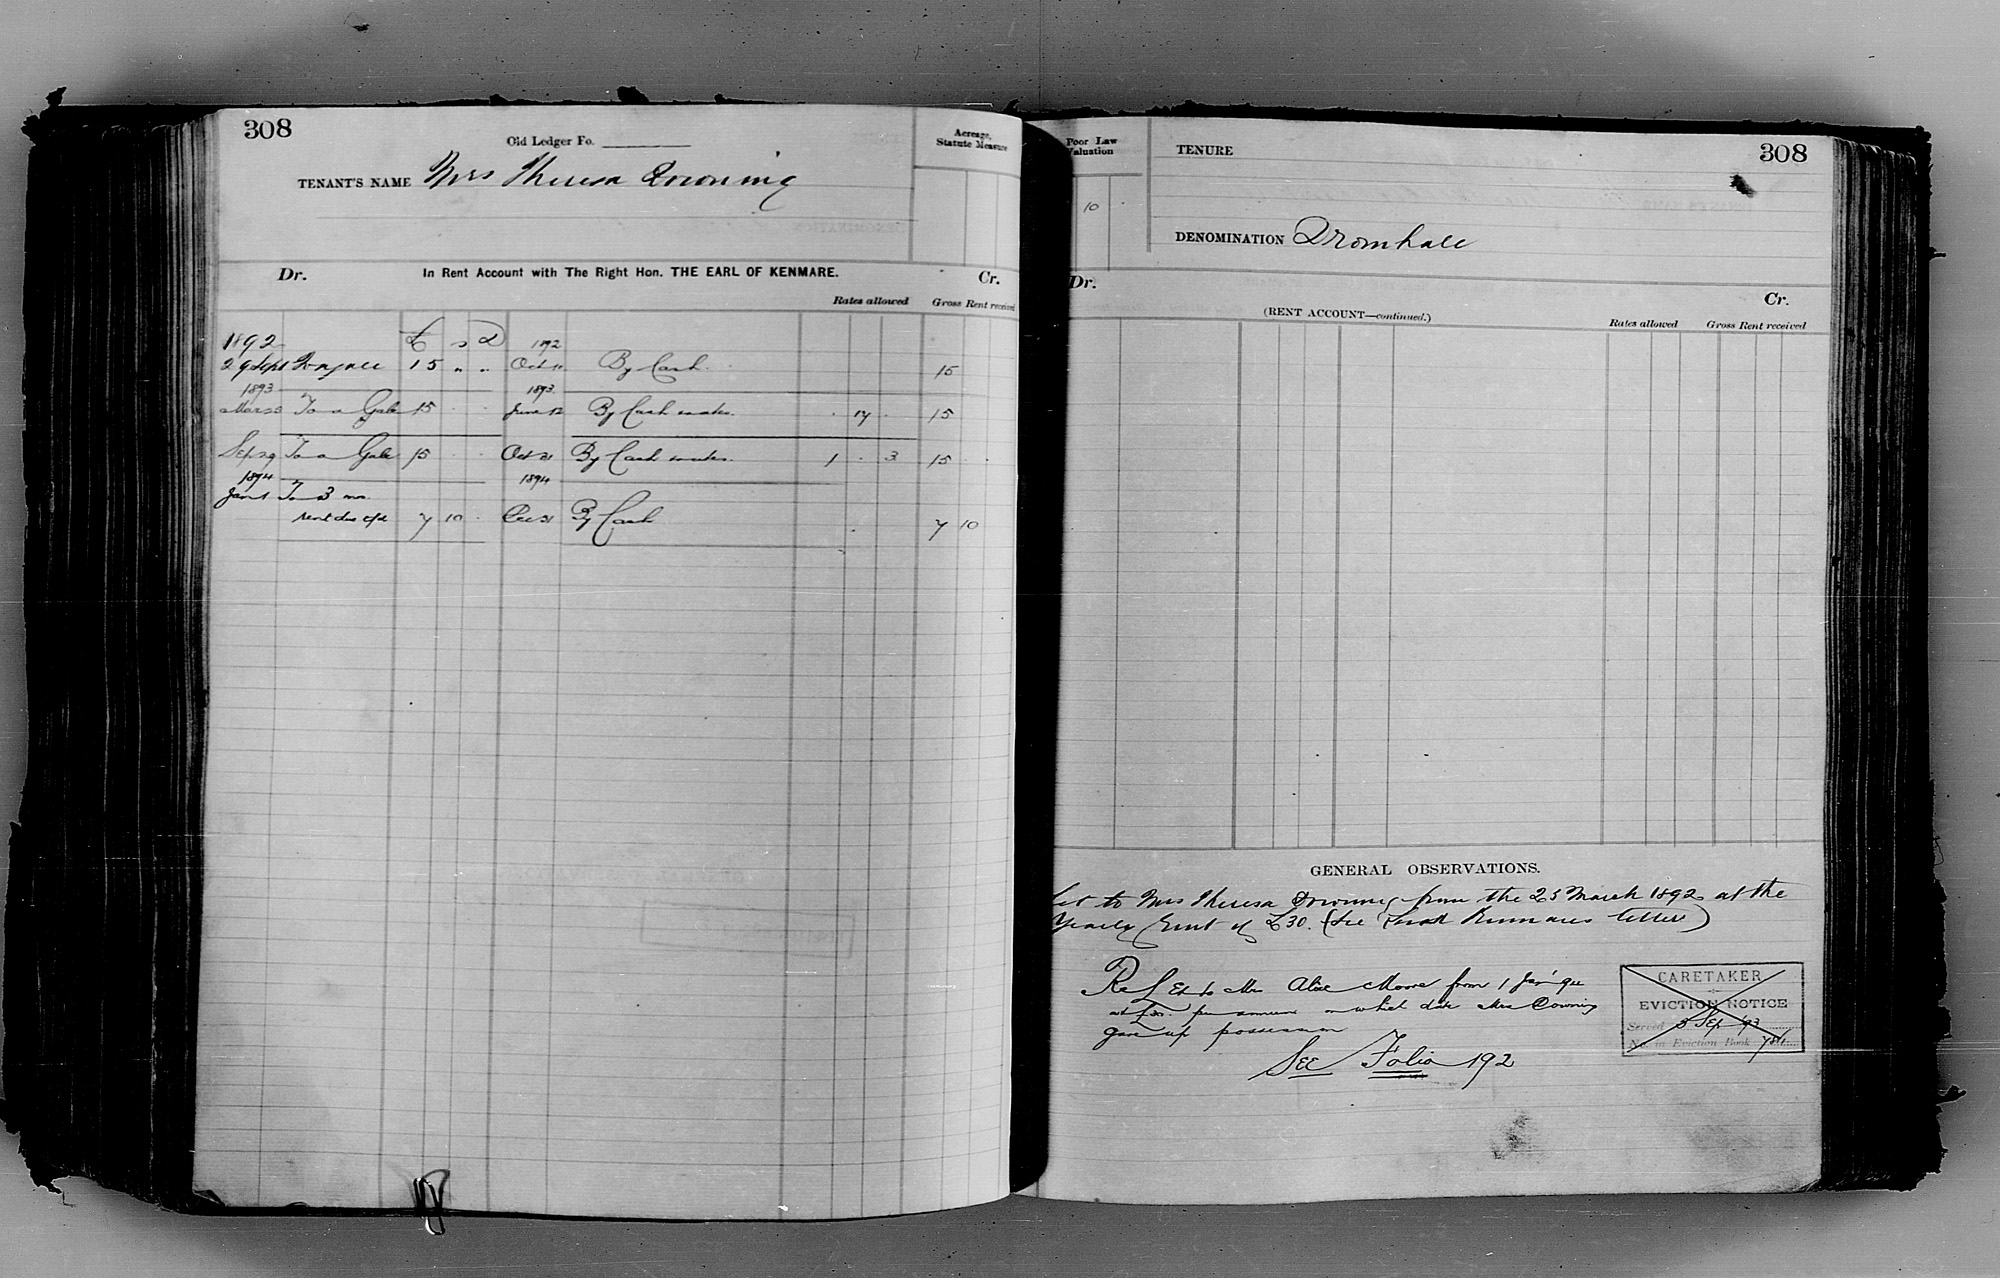 308
Old Ledger Fo.
Acreage, Statute Measure
TENANT'S NAME Mrs Theresa Downing
Dr. In Rent Account with The Right Hon. THE EARL OF KENMARE. Cr.
Rates allowed Gross Rent received
1892 £ s D 1892
29 Sept To a gale 15 " " Oct 11 By Cash 15
1893 1893
Mar 25 To a Gale 15 . . June 12 By Cash . 17 . 15
Sep 29 To a Gale 15 . . Oct 21 By Cash 1 . 3 15 . .
1894 1894
Jan 1 To 3 mos
rent due 7 10 . Dec 31 By Cash 7 10
Poor Law Valuation
10
TENURE
308
DENOMINATION Dromhale
Dr. Cr.
(RENT ACCOUNT—continued.)
Rates allowed Gross Rent received
GENERAL OBSERVATIONS.
Let to Mrs Theresa Downing from the 25 March 1892 at the
Yearly Rent of £30. (See Lord Kenmares letter)
Re Let to Mrs Alice Moore from 1 Jan '94
at £30. per annum on which date Mrs Downing
gave up possession
See Folio 192
CARETAKER
EVICTION NOTICE
Served 5 Sep '93
No. in Eviction Book